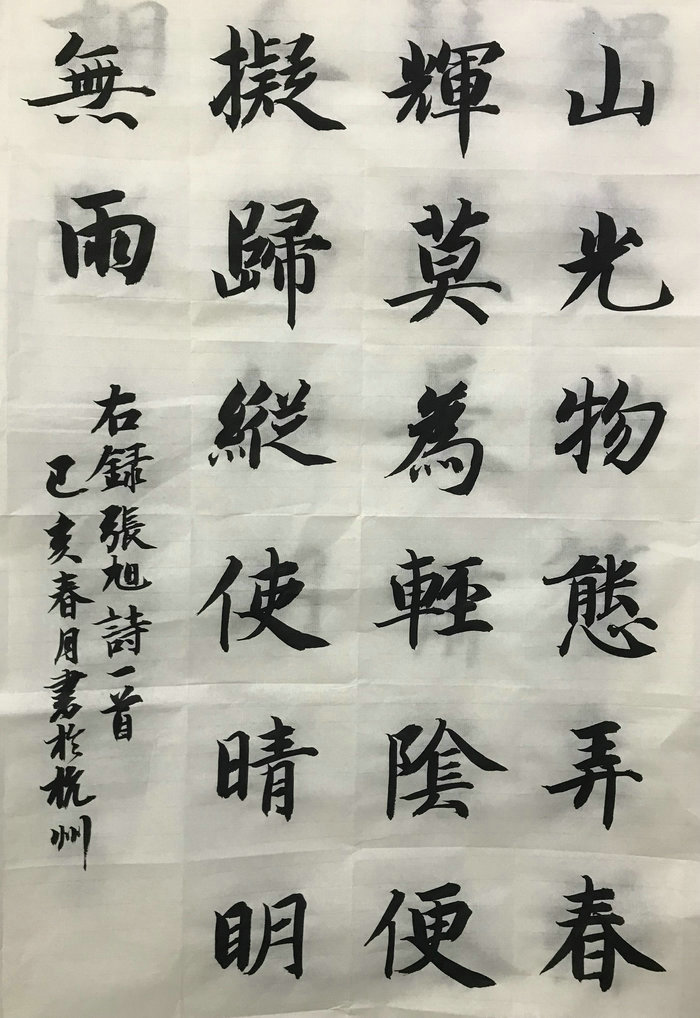 山光物態弄春
輝莫為輕陰便
擬歸縱使晴明
無雨
右録張旭詩一首
己亥春月書於杭州